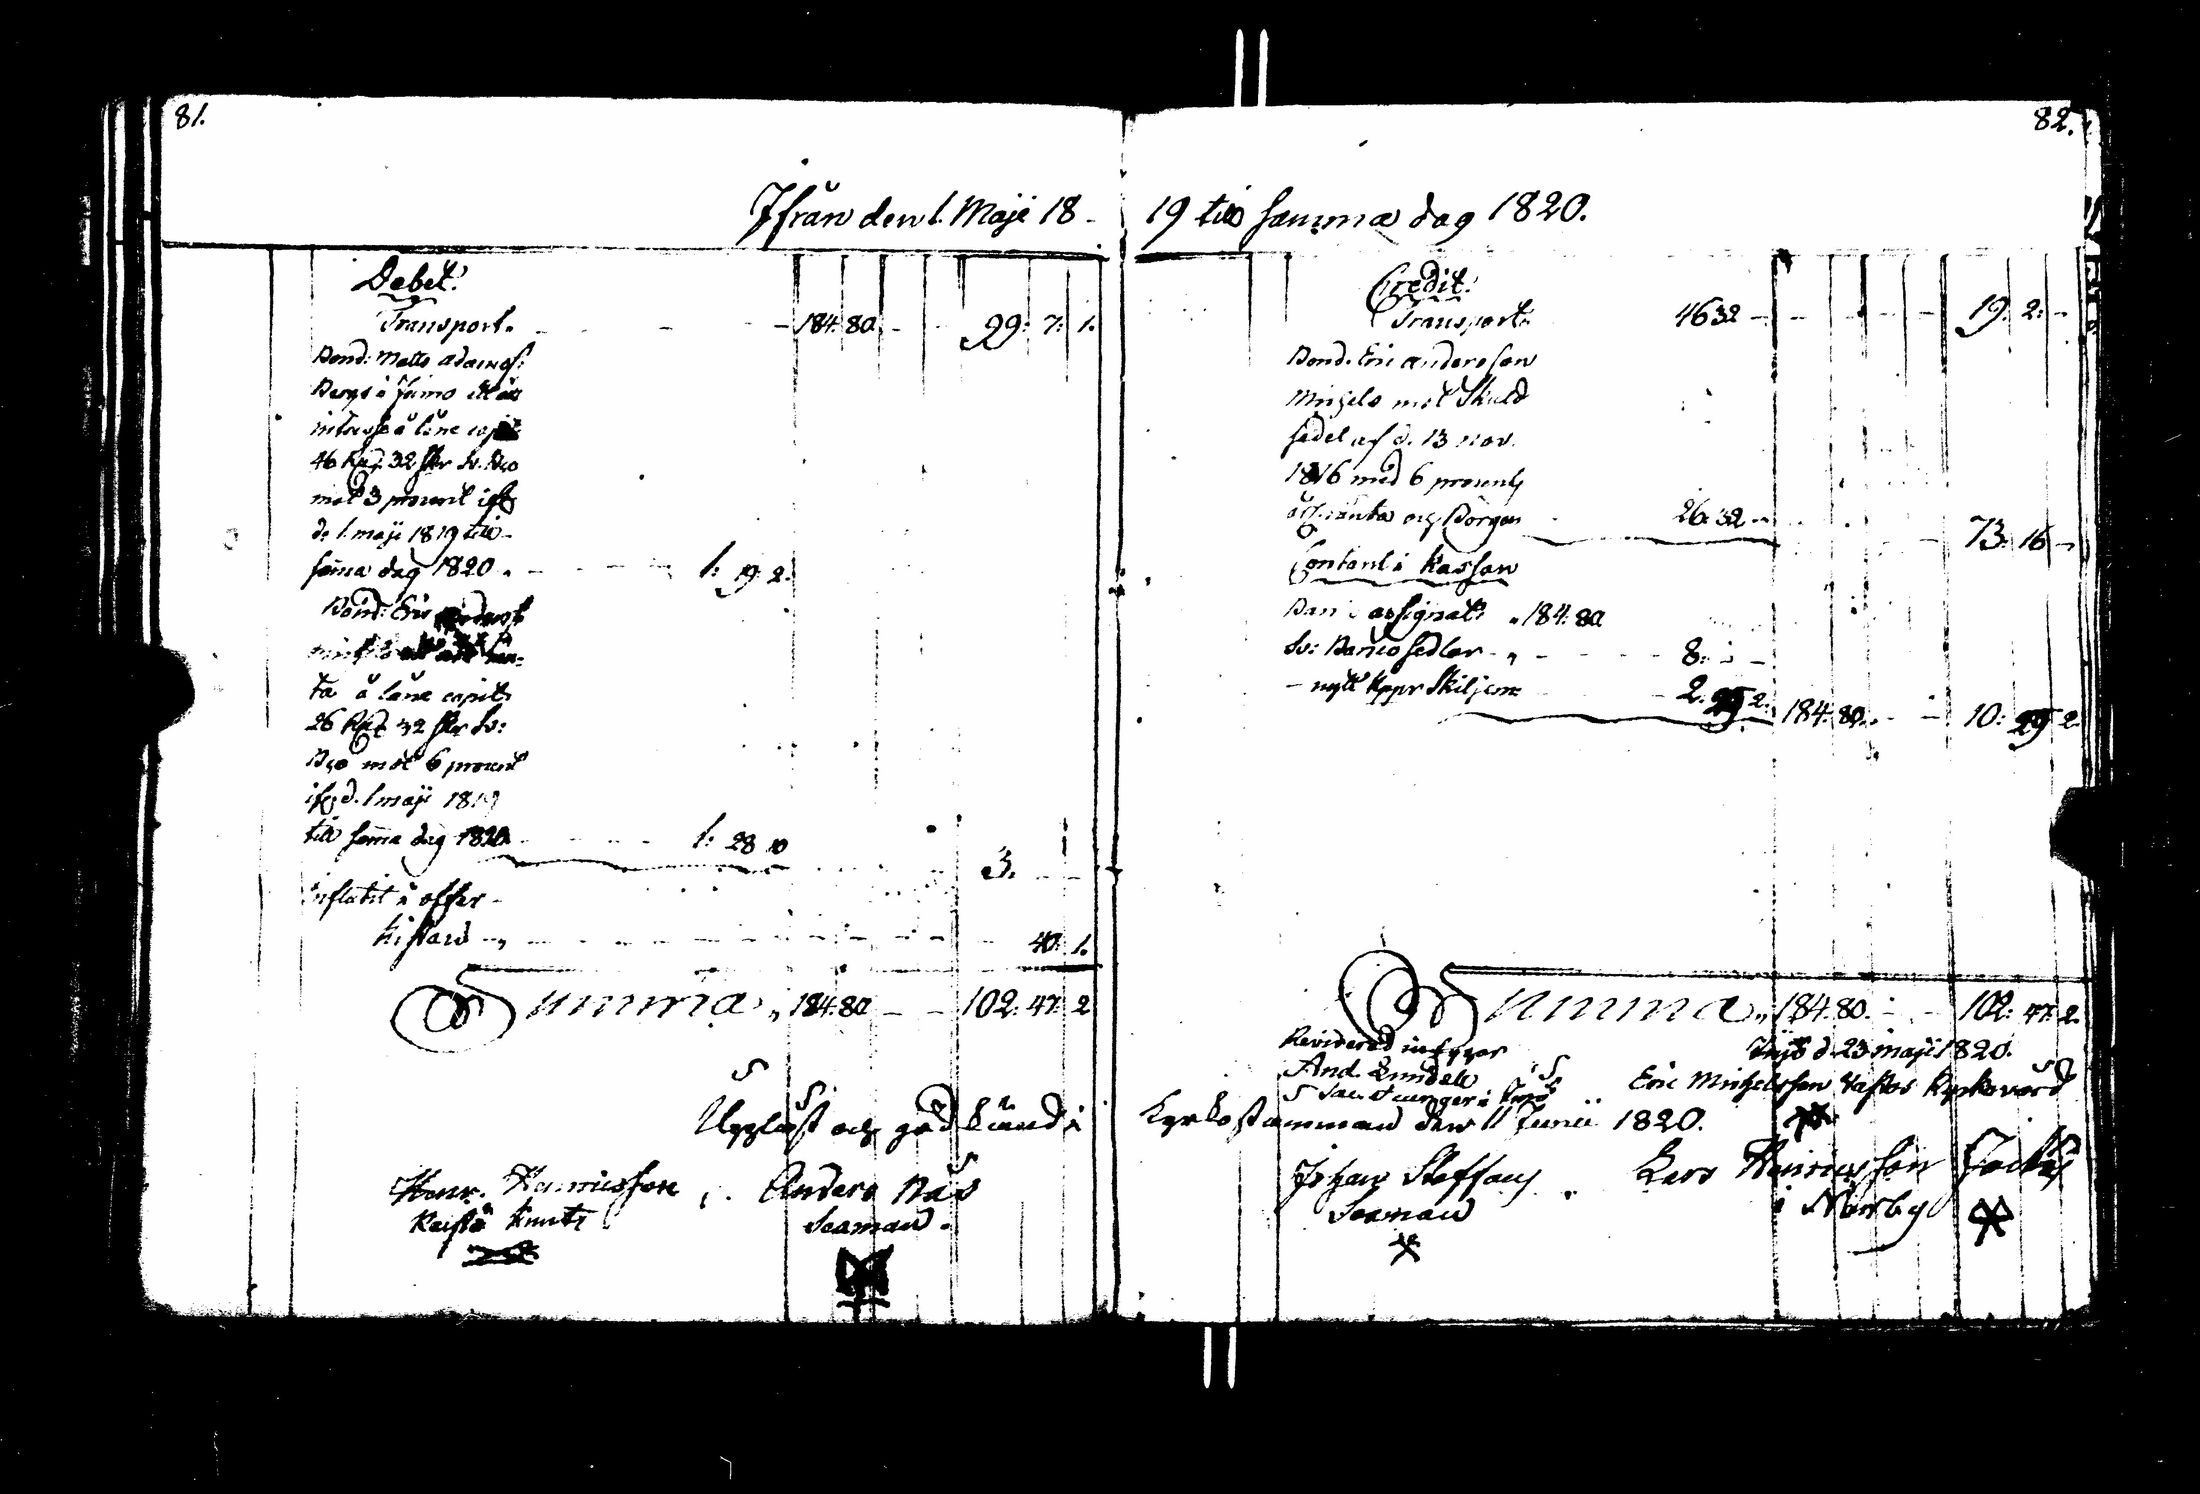 81.
82.
Ifrån den 1. Maji 18-19 till samma dag 1820.
Debet:
Transport. 184. 80. 99: 7: 1.
Bond: Matts Adamss:
Bergs i Jurmo ett års
intresse å låne capit:
46 Rd. 32 sk. Sv. Bco
mot 3 procent ifr.
d. 1. maji 1819 till
sama dag 1820. 1: 19. 2.
Bond: Eric Anderss
ta å låne capit:
26 Rd. 32 sk. Sv:
Bco mot 6 procent
ifr. d. 1 maji 1819
till sama dag 1820. 1: 28 10
3.
influtit i offer-
kistan 40. 1.
Summa 184. 80 102: 47. 2
Credit:
Transport. 46 32 19. 2.
Bond. Eric Andersson
Michels mot Skuld
sedel af d. 13 nov.
1816 med 6 procents
årl. ränta och Borgen 26. 32 73. 16
Contant i Kassan
Banc: assignat: 184. 80
Sv: Banco sedlar 8.
- nytt kppr Skiljem: 2. 2. 184. 80. 10: 29 2
Summa 184. 80. 102: 47. 2.
Reviderad
And. Lundell
Sac.
d. 23 maji 1820.
Eric Michelsson Kyrkovärd
Uppläst och godkänd i Kyrkostämman den 11 Junii 1820.
Henr. Henricsson Anders Nås
Knuts Seaman.
Johan Steffans Lars Henricsson
Seaman i Norrby